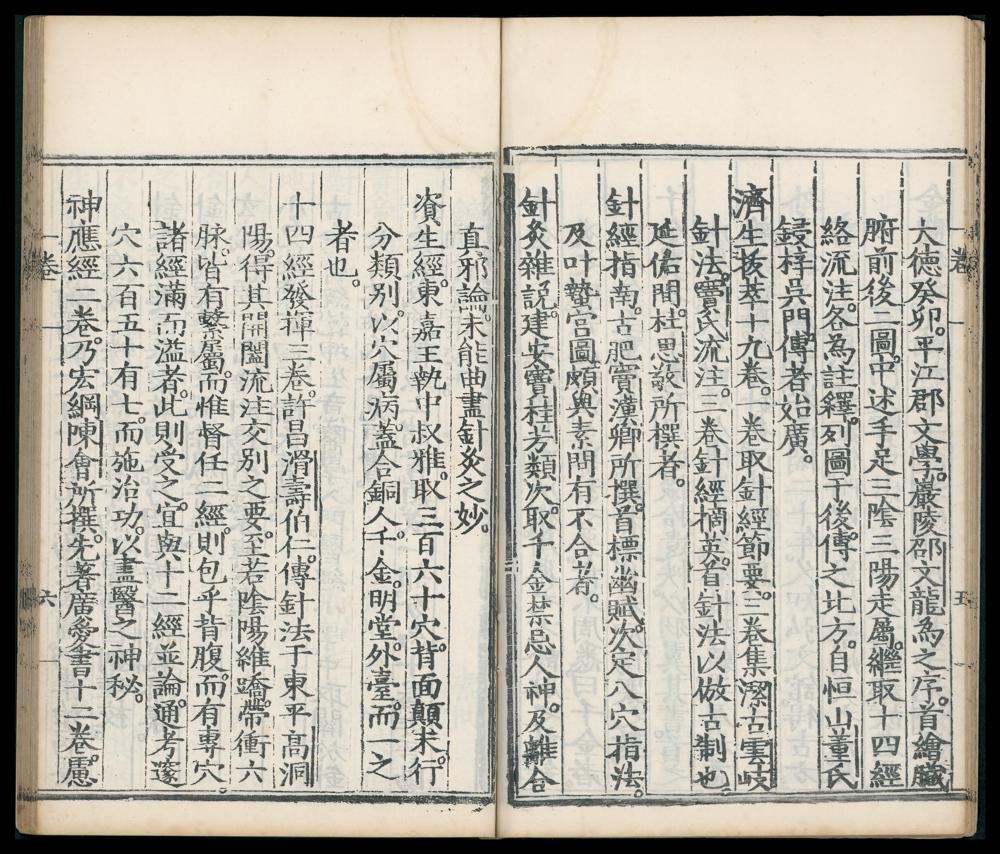 大德癸卯。平江郡文學。嚴陵邵文龍為之序。首繪臟
腑前後二圖。中述手足三陰三陽走屬。繼取十四經
絡流注。各為註釋。列圖于後。傳之北方。自恒山董氏
鋟梓吳門。傳者始廣。
濟生拔萃十九卷。一卷取針經節要。二卷集㓗古雲岐
針法。竇氏流注。三卷針經摘英。首針法以倣古制也。
延佑間。杜思敬所撰者。
針經指南。古肥竇漢卿所撰。首標幽賦。次定八穴指法。
及叶蟄宮圖。頗與素問有不合者。
針灸雜說。建安竇桂芳類次。取千金禁忌人神。及離合
卷一
五
直邪論。未能曲盡針灸之妙。
資生經。東嘉王執中叔雅。取三百六十穴。背面顛末。行
分類別。以穴屬病。蓋合銅人。千金。明堂。外臺。而一之
者也。
十四經發揮三卷。許昌滑壽伯仁。傳針法于東平高洞
陽。得其開闔流注交別之要。至若陰陽維蹻。帶衝六
脉。皆有繫屬。而惟督任二經。則包乎背腹。而有專穴。
諸經滿而溢者。此則受之。宜與十二經並論。通考邃
穴六百五十有七。而施治功。以盡醫之神秘。
神應經二卷。乃宏綱陳會所撰。先著廣愛書十二卷。慮
卷一
六